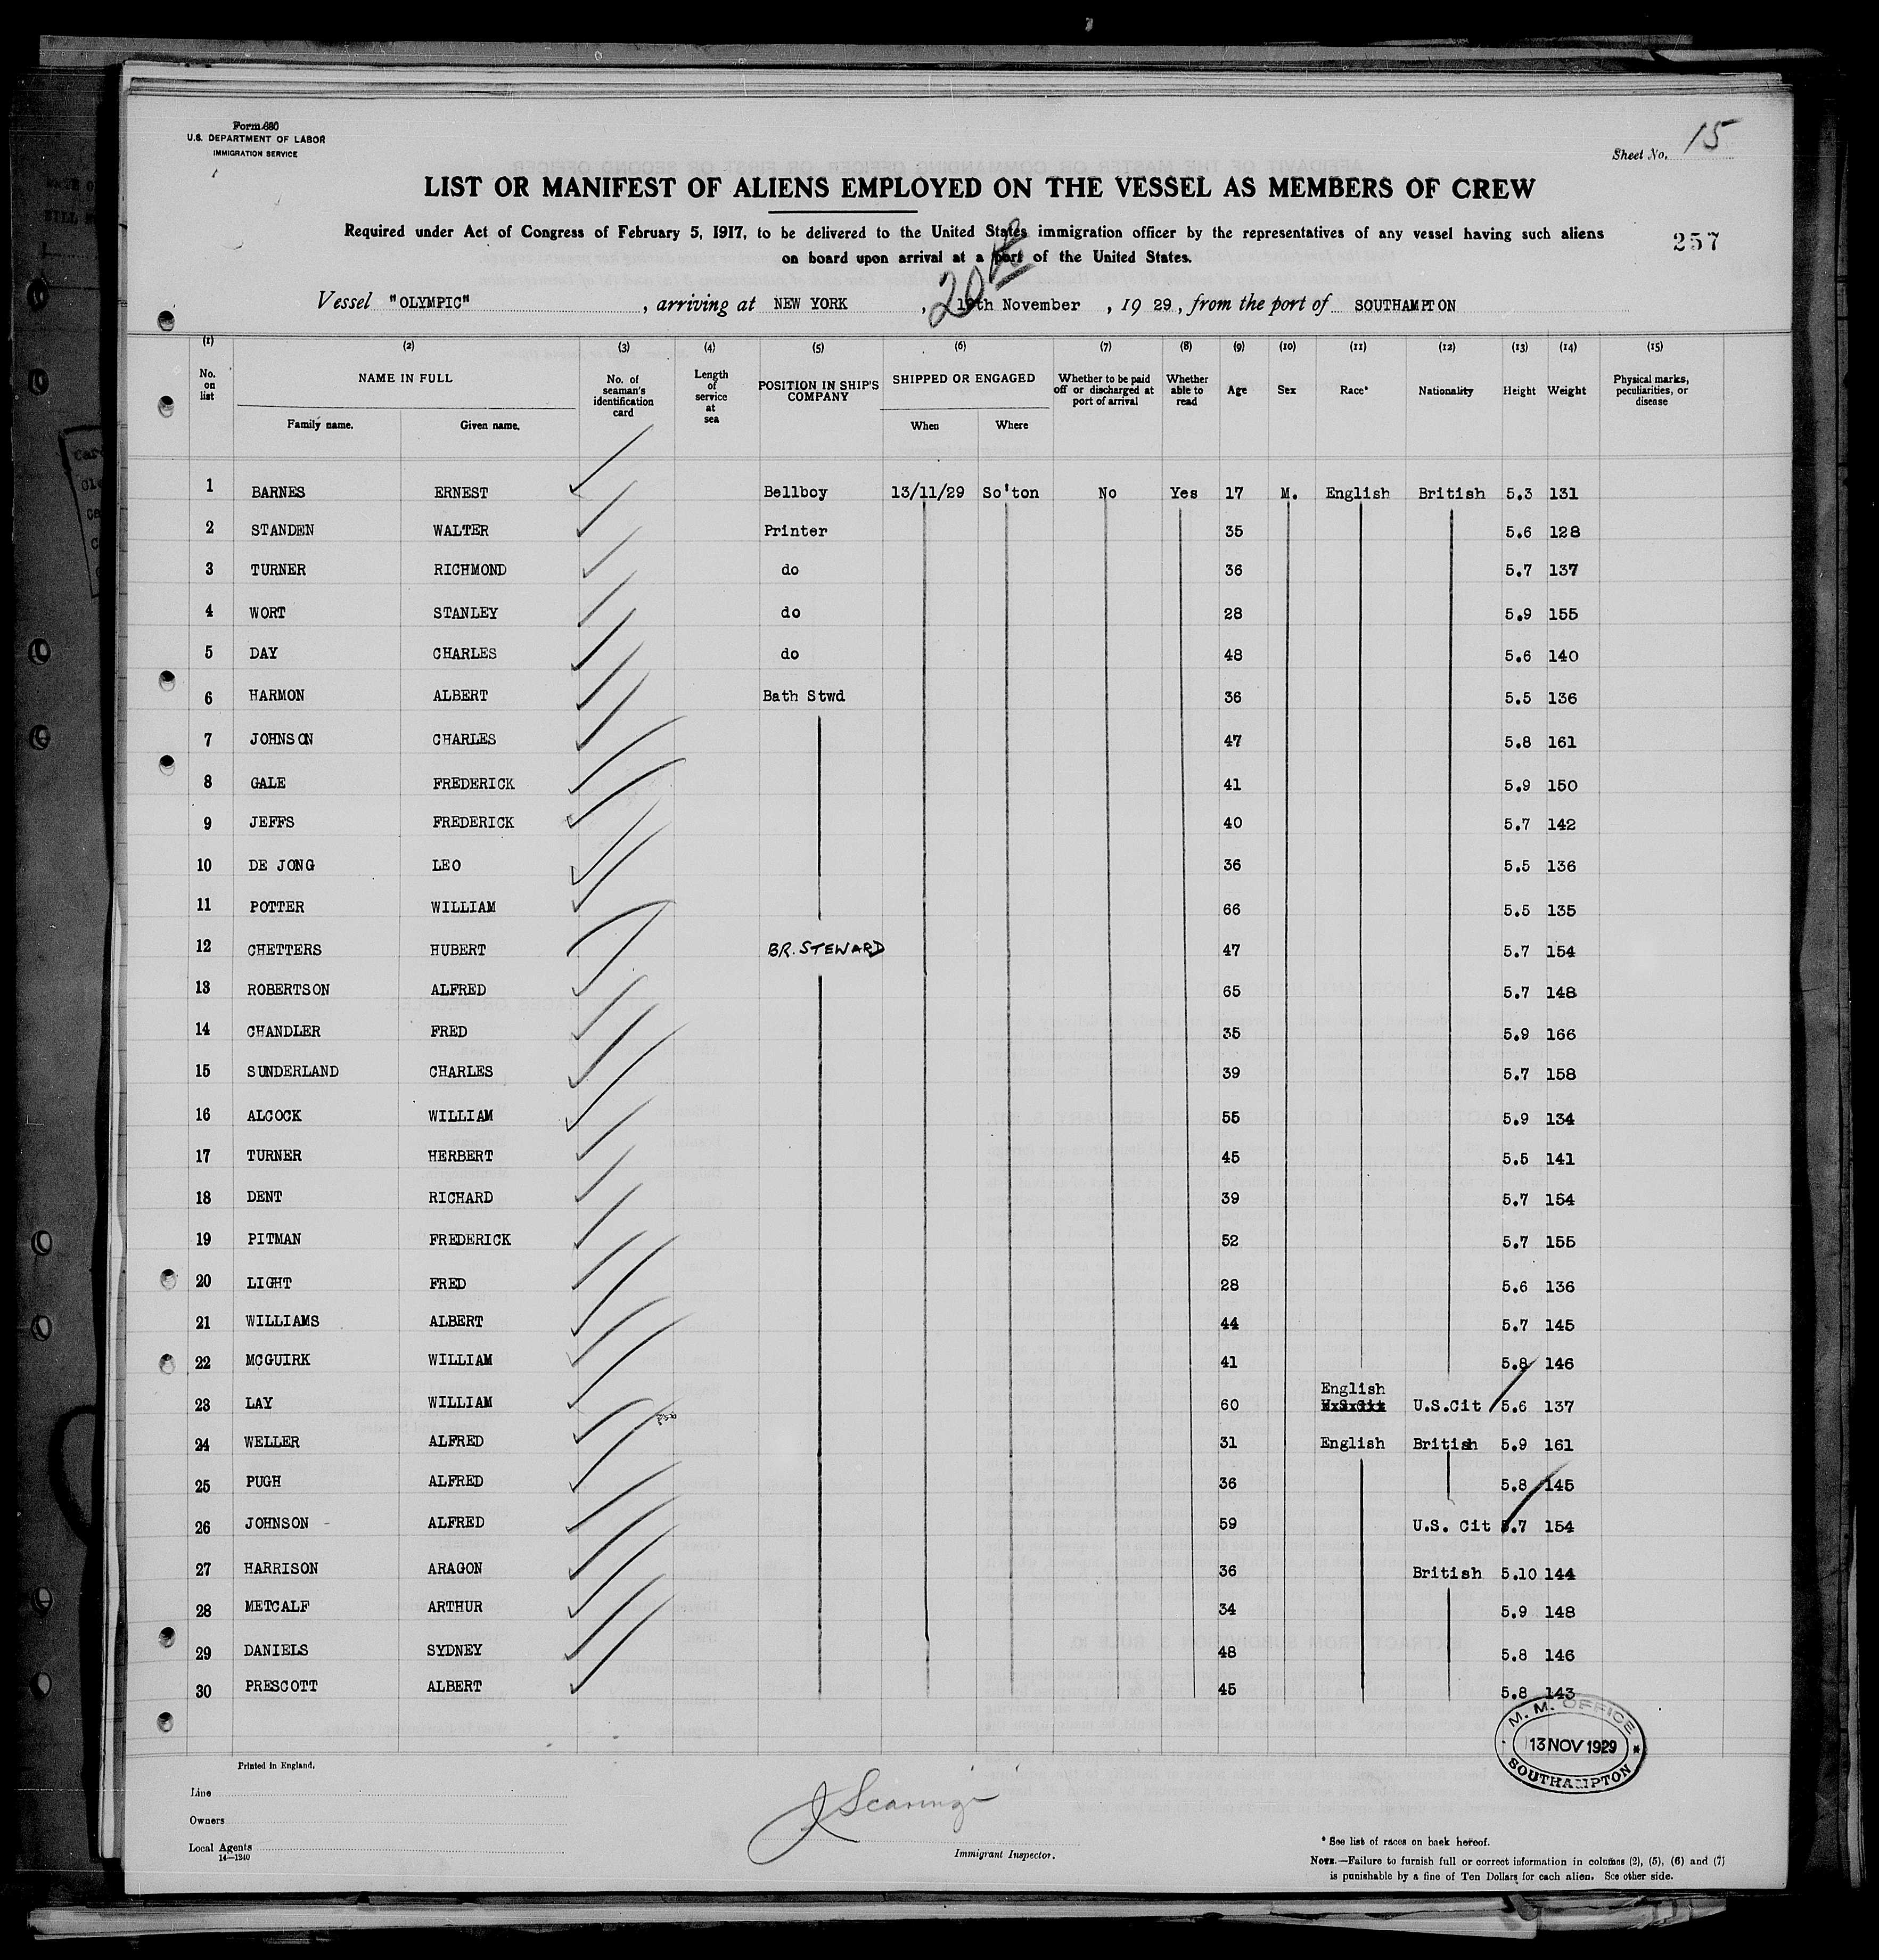 Form 680
U.S. DEPARTMENT OF LABOR
IMMIGRATION SERVICE
Sheet No. 15
LIST OR MANIFEST OF ALIENS EMPLOYED ON THE VESSEL AS MEMBERS OF CREW
Required under Act of Congress of February 5, 1917, to be delivered to the United States immigration officer by the representatives of any vessel having such aliens
on board upon arrival at a port of the United States.
257
20th
Vessel "OLYMPIC", arriving at NEW YORK, 19th November, 19 29, from the port of SOUTHAMPTON
(1) (2) (3) (4) (5) (6) (7) (8) (9) (10) (11) (12) (13) (14) (15)
No. on list NAME IN FULL No. of seaman's identification card Length of service at sea POSITION IN SHIP'S COMPANY SHIPPED OR ENGAGED Whether to be paid off or discharged at port of arrival Whether able to read Age Sex Race* Nationality Height Weight Physical marks, peculiarities, or disease
Family name. Given name. When Where
1 BARNES ERNEST Bellboy 13/11/29 So'ton No Yes 17 M. English British 5.3 131
2 STANDEN WALTER Printer 35 5.6 128
3 TURNER RICHMOND do 36 5.7 137
4 WORT STANLEY do 28 5.9 155
5 DAY CHARLES do 48 5.6 140
6 HARMON ALBERT Bath Stwd 36 5.5 136
7 JOHNSON CHARLES 47 5.8 161
8 GALE FREDERICK 41 5.9 150
9 JEFFS FREDERICK 40 5.7 142
10 DE JONG LEO 36 5.5 136
11 POTTER WILLIAM 66 5.5 135
12 CHETTERS HUBERT BR. STEWARD 47 5.7 154
13 ROBERTSON ALFRED 65 5.7 148
14 CHANDLER FRED 35 5.9 166
15 SUNDERLAND CHARLES 39 5.7 158
16 ALCOCK WILLIAM 55 5.9 134
17 TURNER HERBERT 45 5.5 141
18 DENT RICHARD 39 5.7 154
19 PITMAN FREDERICK 52 5.7 155
20 LIGHT FRED 28 5.6 136
21 WILLIAMS ALBERT 44 5.7 145
22 MCGUIRK WILLIAM 41 5.8 146
23 LAY WILLIAM 60 English U.S.Cit 5.6 137
24 WELLER ALFRED 31 English British 5.9 161
25 PUGH ALFRED 36 5.8 145
26 JOHNSON - ALFRED 59 U.S. Cit 5.7 154
27 HARRISON ARAGON 36 British 5.10 144
28 METCALF ARTHUR 34 5.9 148
29 DANIELS SYDNEY 48 5.8 146
30 PRESCOTT ALBERT 45 5.8 143
M. M. OFFICE
13 NOV 1929
SOUTHAMPTON
Printed in England.
Line
Owners
Local Agents
14—1240
Immigrant Inspector.
* See list of races on back hereof.
NOTE.—Failure to furnish full or correct information in columns (2), (5), (6) and (7)
is punishable by a fine of Ten Dollars for each alien. See other side.